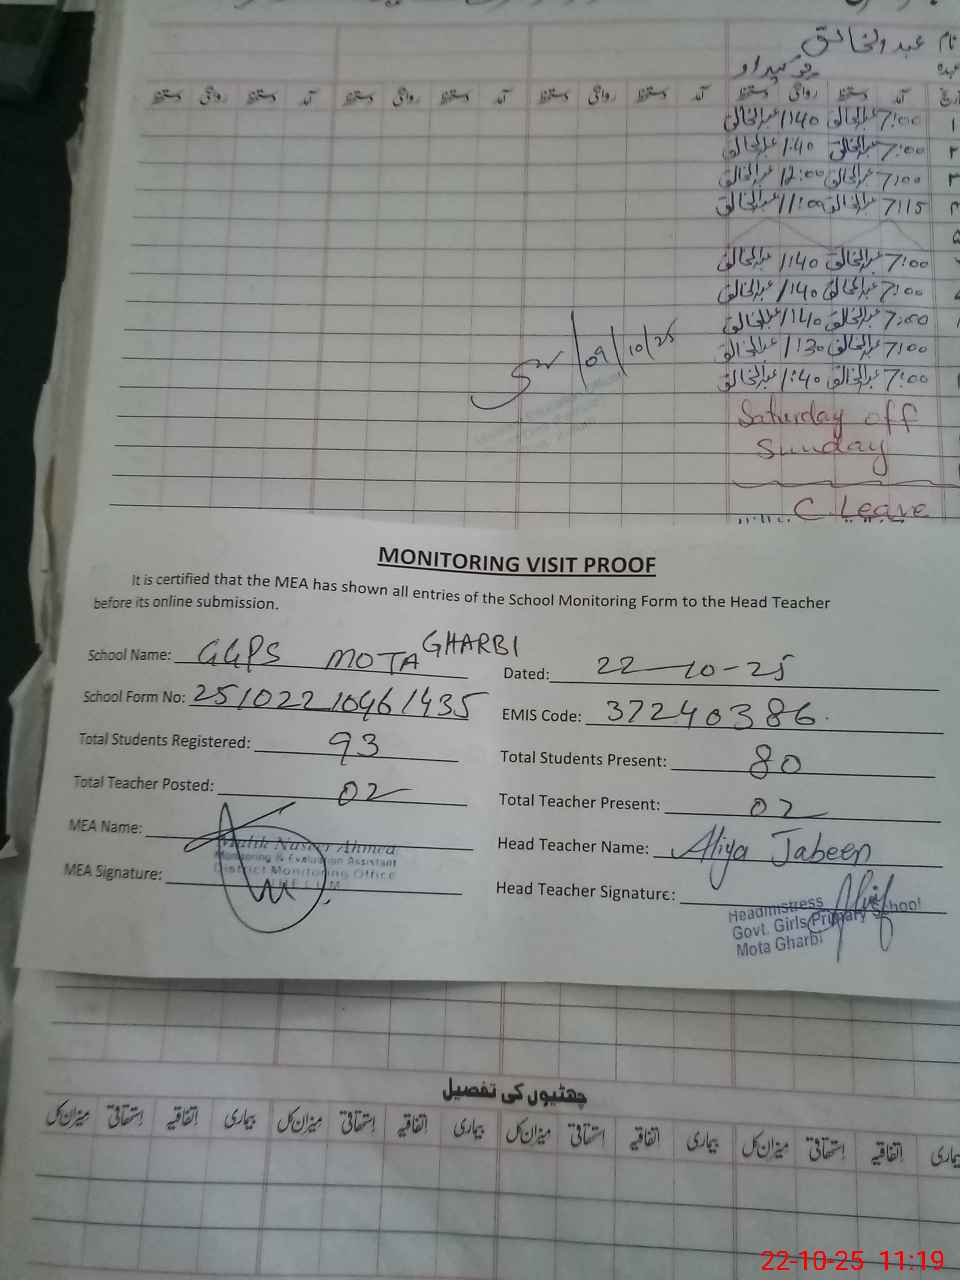 نام عبدالخالق
عہدہ چوکیدار
تاریخ آمد دستخط روانگی دستخط آمد دستخط روانگی دستخط آمد دستخط روانگی دستخط آمد دستخط روانگی دستخط
۱ 7:00 عبدالخالق 1:40 عبدالخالق
۲ 7:00 عبدالخالق 1:40 عبدالخالق
۳ 7:00 عبدالخالق 12:00 عبدالخالق
۴ 7:15 عبدالخالق 11:09 عبدالخالق
۵
7:00 عبدالخالق 1:40 عبدالخالق
7:00 عبدالخالق 1:40 عبدالخالق
7:00 عبدالخالق 1:40 عبدالخالق
7:00 عبدالخالق 1:30 عبدالخالق
7:00 عبدالخالق 1:40 عبدالخالق
09/10/25
Saturday off
Sunday
C. Leave
MONITORING VISIT PROOF
It is certified that the MEA has shown all entries of the School Monitoring Form to the Head Teacher
before its online submission.
School Name: GGPS MOTA GHARBI
Dated: 22-10-25
School Form No: 25102210961435
EMIS Code: 37240386.
Total Students Registered: 93
Total Students Present: 80
Total Teacher Posted: 02
Total Teacher Present: 02
MEA Name: Malik Naseer Ahmed
Monitoring & Evaluation Assistant
District Monitoring Office
Head Teacher Name: Aliya Jabeen
MEA Signature:
Head Teacher Signature:
Headmistress
Govt. Girls Primary School
Mota Gharbi
چھٹیوں کی تفصیل
بیماری اتفاقیہ استحقاقی میزان کل بیماری اتفاقیہ استحقاقی میزان کل بیماری اتفاقیہ استحقاقی میزان کل بیماری اتفاقیہ استحقاقی میزان کل
22-10-25 11:19